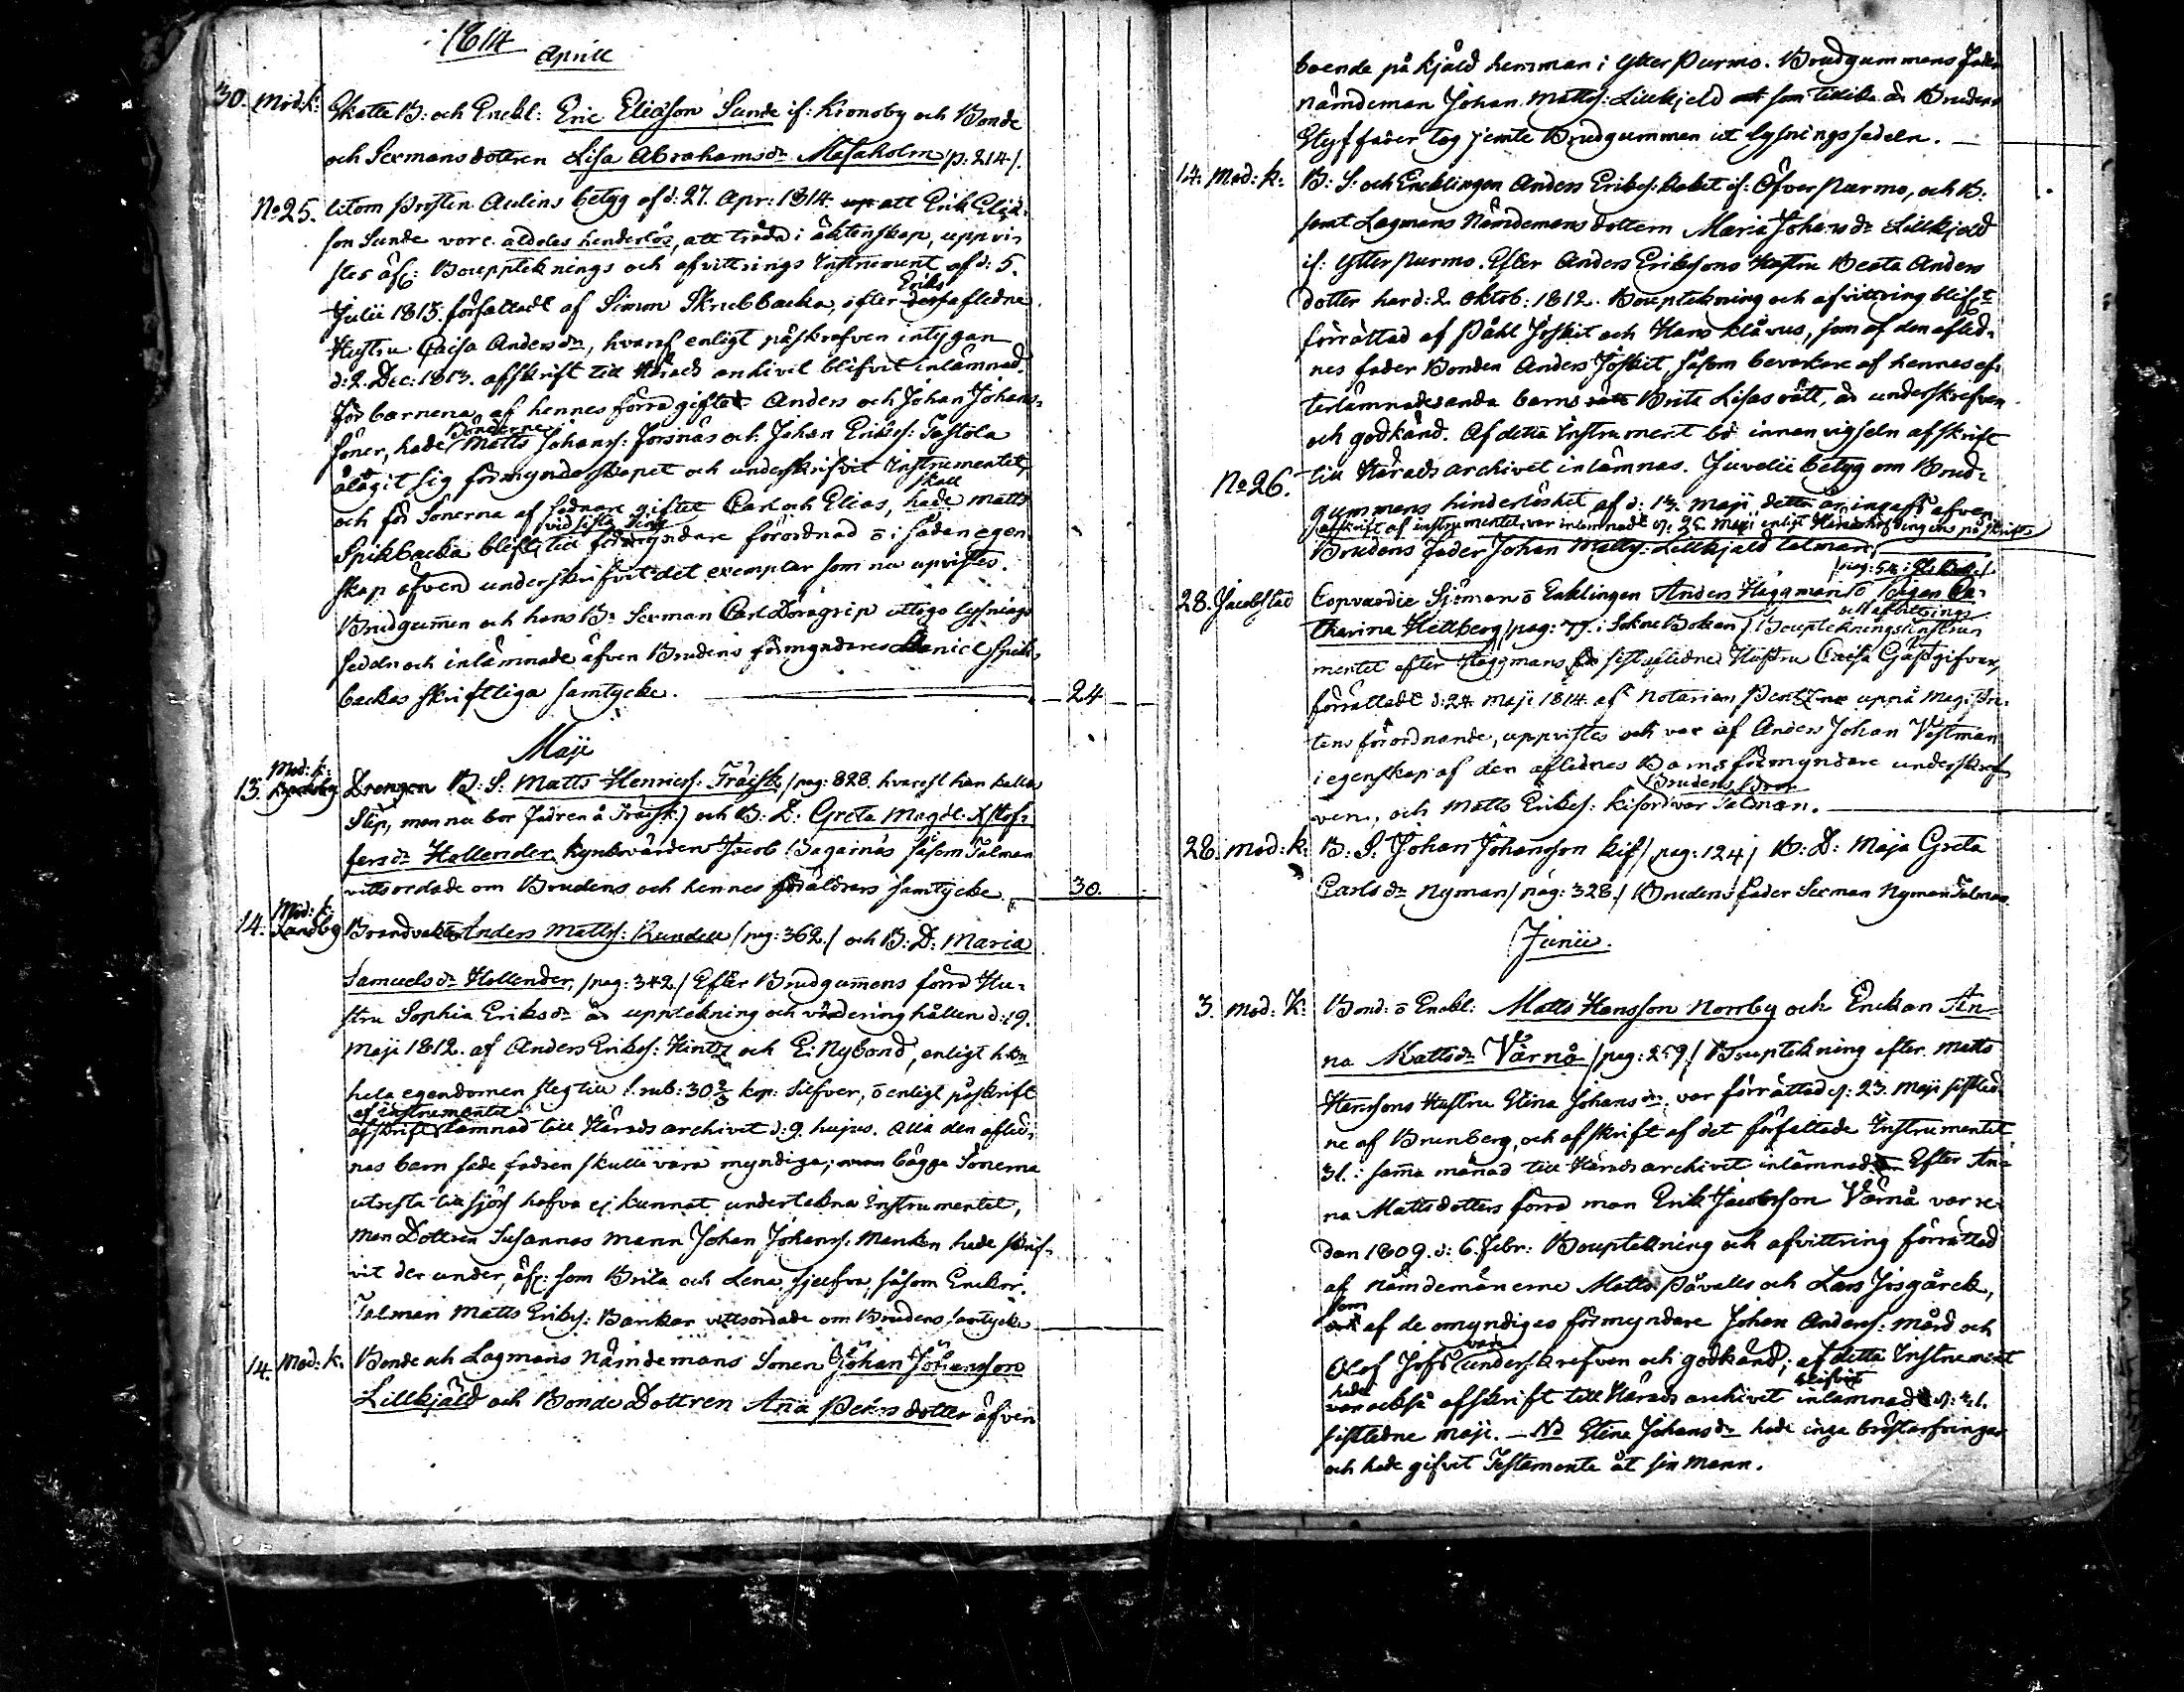 1814
Aprill
30. Mod: k: Skatte B: och Enckl: Eric Eliæson Sunde if: Kronoby och Bonde
och Sexmans dottren Lisa Abrahamsdr Masaholm /p: 214/.
No 25. Utom Prosten Aulins betyg af d: 27. Apr: 1814. att Erik Eliæ-
son Sunde vore aldeles henderlös, att träda i äktenskap, uppvi-
stes äfv: Bouppteknings och afvittrings Instrument af d: 5.
Julii 1813. författadt af Simon Skrubbacka, efter Eriks afledna
Hustru Caisa Andersdr, hvaraf enligt påskrefven intygan
d: 2. Dec: 1813. afskrift till Härads arkivet blifvit inlämnad.
För barnena af hennes förra gifte Anders och Johan Johans-
söner, hade Bönderne Matts Johanss: Forsnäs och Johan Erikss: Tastola
åtagit sig förmynderskapet och underskrifvit Instrumentet,
och för Sönerna af sednare giftet Carl och Elias, hade Matts
Spikbacka blefvit vid sista Ting till förmyndare förordnad ō i sådan egen
skap äfven underskrifvit det exemplar som nu upvistes.
Brudgummen och hans Br Sexman Carl Döragrip uttogo lysnings
sedeln och inlämnade äfven Brudens förmynderes Daniel Spik-
backas skriftliga samtycke. 24
Maji
13. Mod: k: Drengen B: S: Matts Henricss: Träisk /pag: 828. hvarest han kallas
Slip, men nu bor fadren å Träisk/ och B: D: Greta Magdl: Xstof-
fersdr Hollender. Kyrkovärden Jacob Bagarnäs såsom Talman
vittsordade om Brudens och hennes föräldrars samtycke. 30.
14. Mod: k: Sandby Brandvakten Anders Mattss: Rundell /pag: 362./ och B: D: Maria
Samuelsdr Hollender, /pag: 342./ Efter Brudgummens förra Hu-
stru Sophia Eriksdr är uppteckning och värdering hållen d: 19.
Maji 1812. af Anders Erikss: Hintz och E: Nybond, enligt hvilken
hela egendomen steg till rub: 30 2/3 kop: Silfver, ō enligt påskrift
af instrumentet
afskrift lämnad till Härads archivet d: 9. hujus. Alla den afled-
nas barn sade fadren skulle vara myndiga; bägge Sönerna
utresta till sjös hafva ej kunnat underteckna Instrumentet,
men Dottren Susannas mann Johan Johanss: Manken hade skrif-
vit der under, äfv: som Brita och Lena sjelfva, såsom Enckor.
Talman Matts Erikss: Bankar vittsordade om Brudens samtycke
14. Mod: k. Bonde och Lagmans Nämdemans Sonen Johan Johansson
Lillkjäld och Bonde Dottren Ana Pehrs dotter äfven
boende på Kjäld hemman i Ytter Purmo. Brudgummens fader
Nämdeman Johan Mattss: Lillkjeld som tillika är Brudens
Styffader tog jemte Brudgummen ut lysningssedeln.
14. Mod: k. B: S: och Encklingen Anders Erikss: if: Öfver Purmo, och B:
samt Lagmans Nämdemans dottern Maria Johansdr Lillkjeld
if: Ytter Purmo. Efter Anders Erikssons Hustru Beata Anders
dotter har d: 2 Oktob: 1812. Bouptekning och afvittring blifvit
förrättad af Påhl Jöskit och Hans Klävus, som af den afled-
nes fader Bonden Anders Jöskit, såsom bevakare af hennes ef-
terlämnade enda barns Brita Lisas rätt, är underskrefven
och godkänd. Af detta Instrument bör innan vigseln afskrift
No 26. till Härads archivet inlämnas. Juvelii betyg om Brud-
gummens hinderlöshet af d: 13. Maji, detta år, ingafs äfven
afskrift af instrumentet var inlämnadt d: 25. Maji enligt Häradshöfdingens påskrift
Brudens fader Johan Mattss: Lillkjäld talman.
28. Jacobstad Copvardie Sjöman ō Enklingen Anders Häggman ō Pigan Ca-
tharina Hellberg /pag: 77. i Sokne Boken/ Bouptecknings och afvittrings Instru-
mentet efter Häggmans sist afledne Hustru Caisa Gästgifvar,
förrättadt d: 24 Maji 1814. af Notarien uppå Magistra-
tens förordnande, uppvistes och var af Anders Johan Vestman
i egenskap af den aflednes Barns förmyndare underskref-
ven, och Matts Erikss: Kisor Brudens Bror var Talman.
28. Mod: k: B: S: Johan Johansson Kif /pag: 124/ B: D: Maja Greta
Carlsdr Nyman /pag: 328./ Brudens fader Sexman Nyman Talman.
Junii.
3. Mod: k: Bond: ō Enckl: Matts Hansson Norrby och Enckan An-
na Mattsdr Värnå /pag: 259./ Bouptekning efter Matts
Hanssons Hustru Stina Johansdr, var förrättad d: 23. Maji sistled-
ne af Brunberg, och afskrift af det författade Instrumentet
31.: samma månad till Härads archivet inlämnad. Efter An-
na Mattsdotters förra man Erik Jacobsson Värnå var re-
dan 1809. d: 6. Febr: Bouptekning och afvittring förrättad
af Nämdemännerne Matts Påvalls och Lars Jösgårek,
som af de omyndigas förmyndare Johan Anderss: Mård och
Olof Jofs vare underskrefven och godkänd; af detta Instrument
hade också afskrift till Härads archivet blifvit inlämnad d: 31.
sistledne Maji. — NB Stina Johansdr hade inga bröstarfvingar
och hade gifvit Testamente åt sin mann.